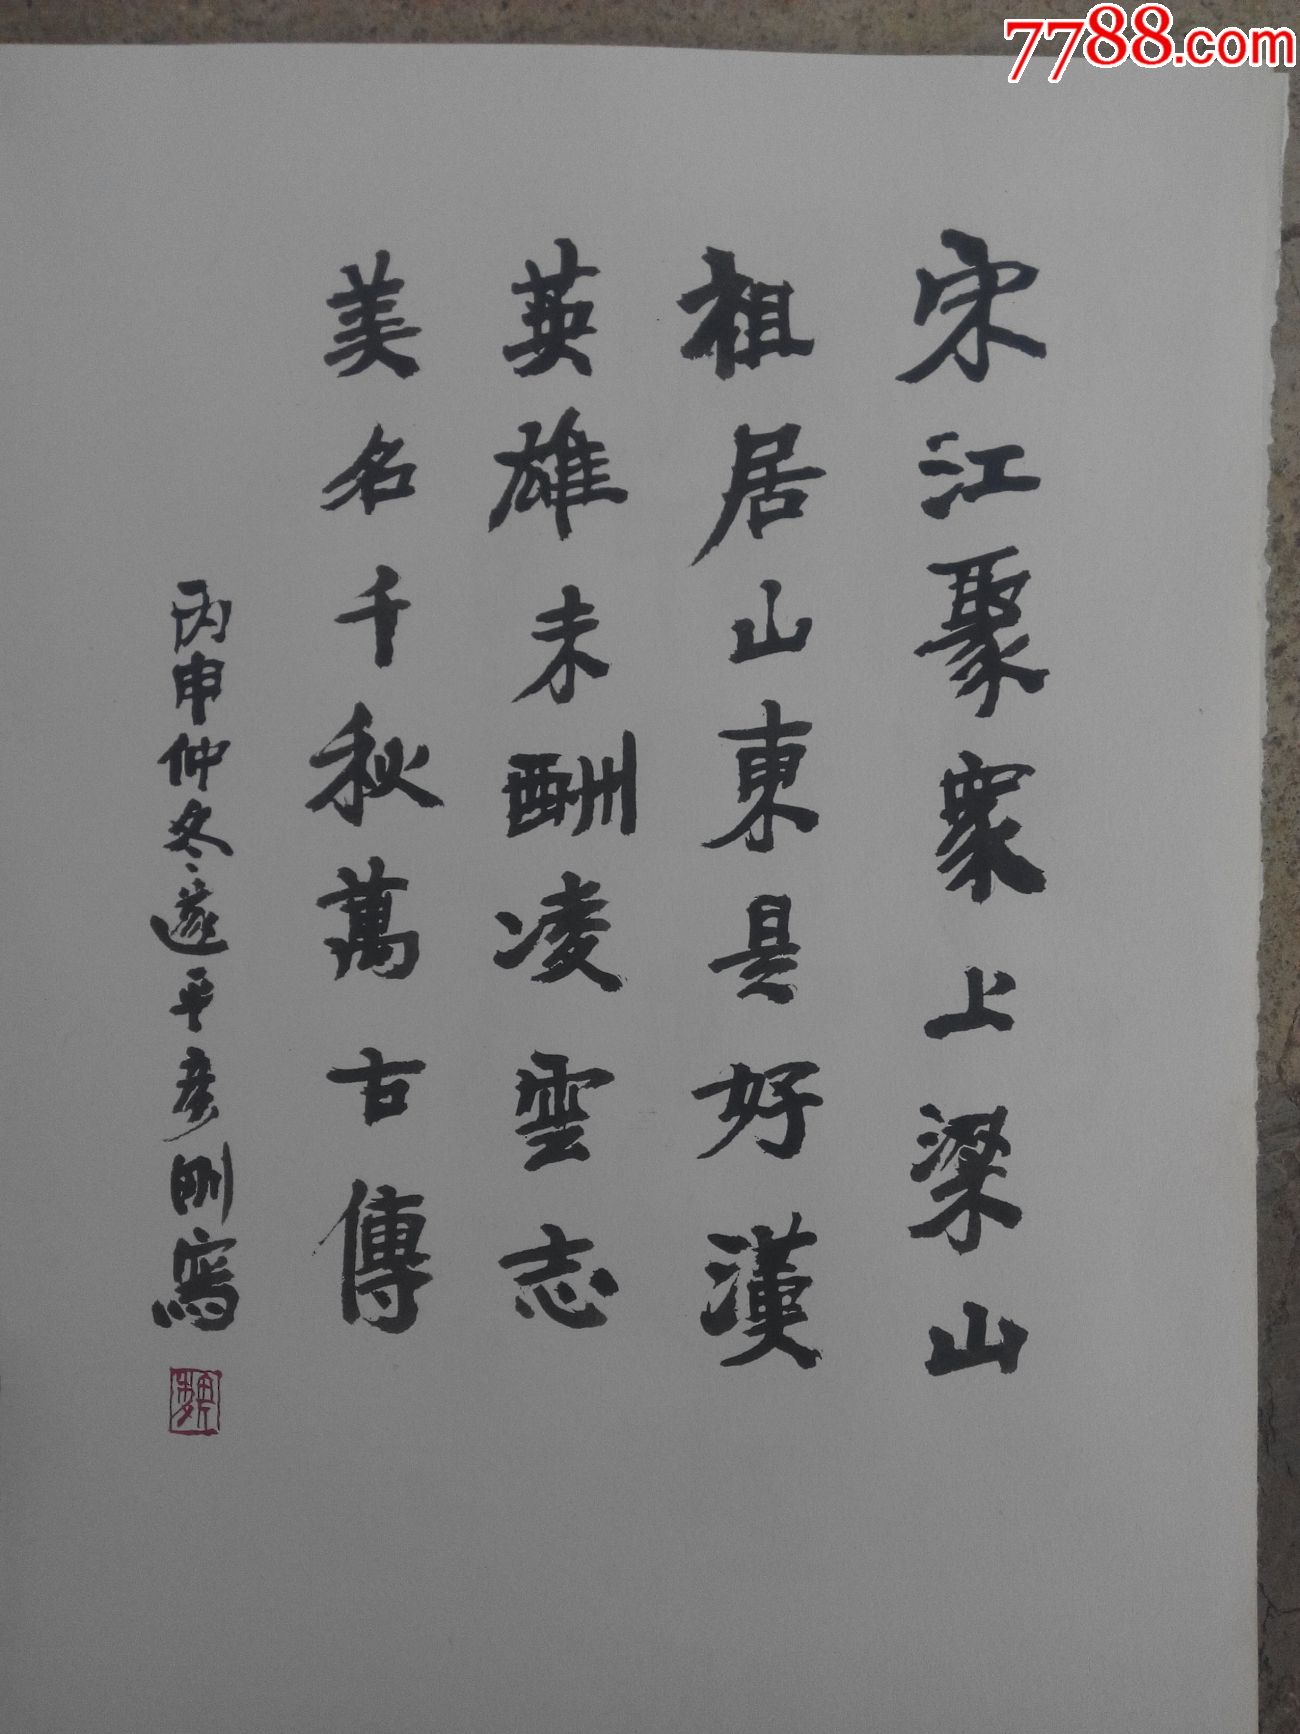 7788.com
宋江聚衆上梁山
祖居山東是好漢
英雄未酬凌雲志
美名千秋萬古傳
丙申仲冬遂平彦刚寫
魏